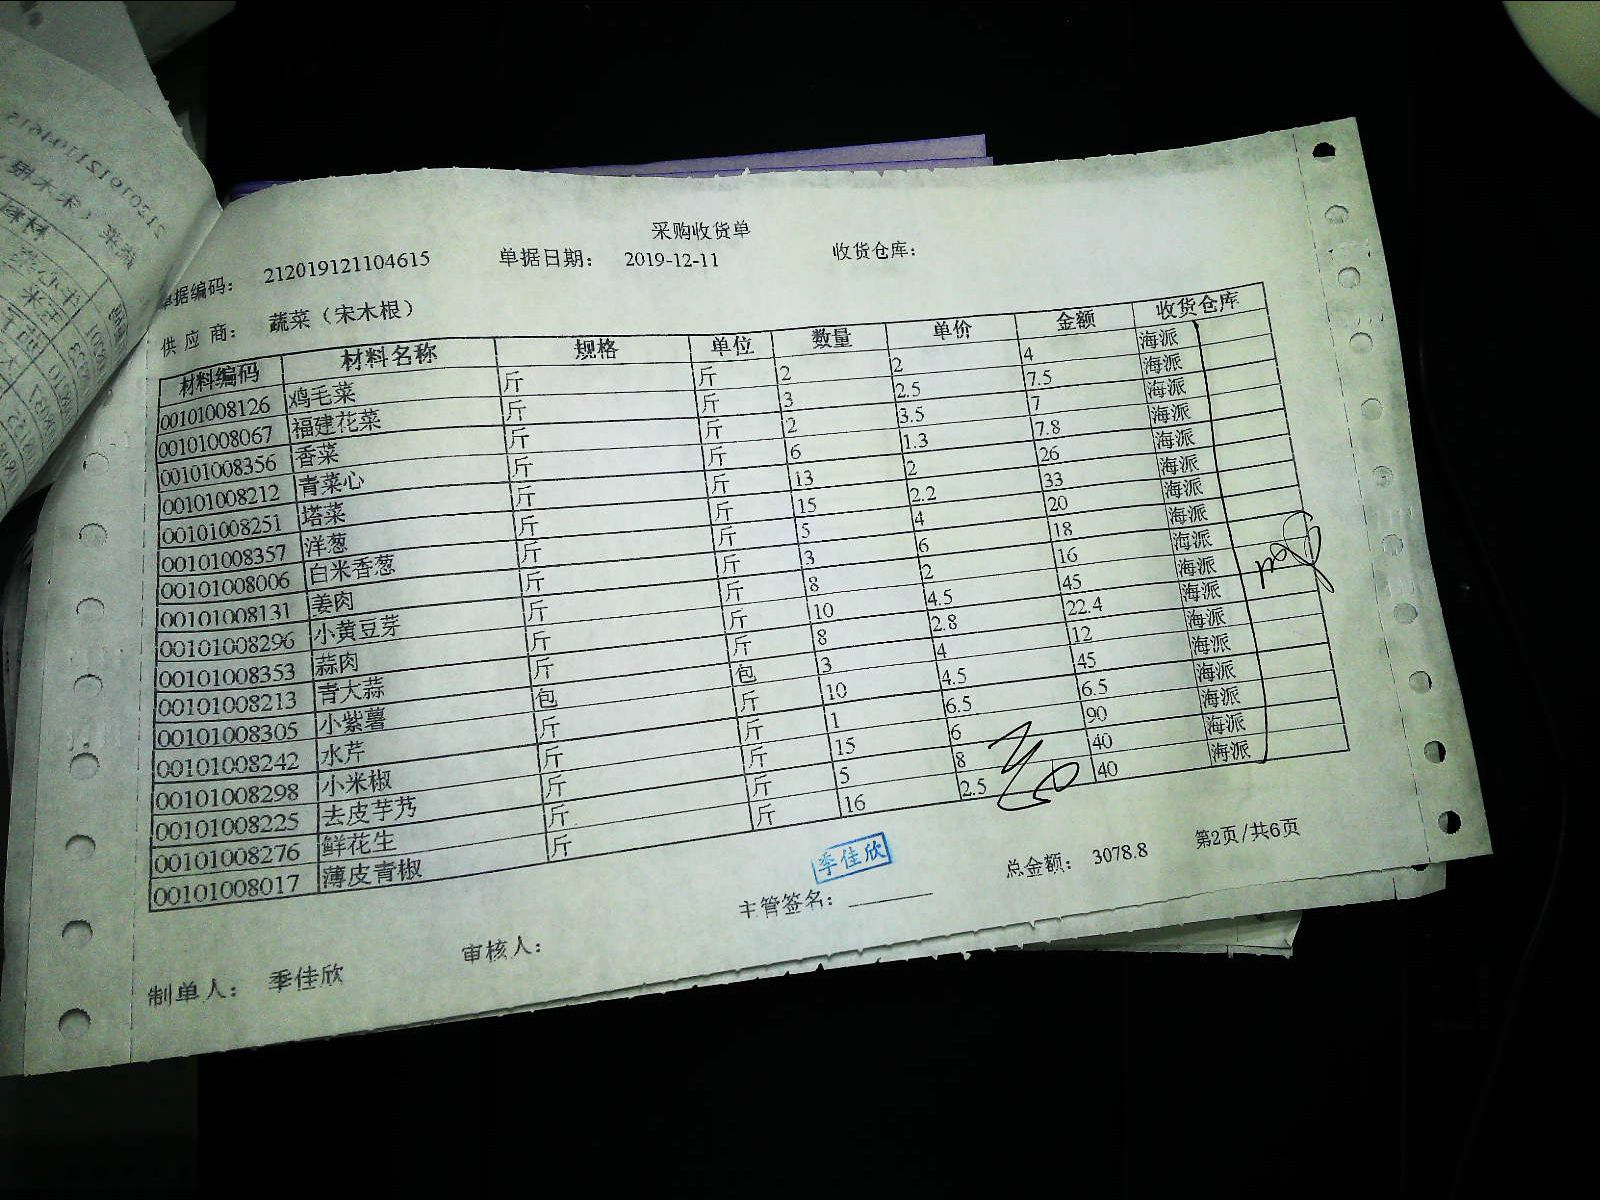 采购收货单
单据编码： 212019121104615 单据日期： 2019-12-11 收货仓库：
供应商： 蔬菜（宋木根）
材料编码 材料名称 规格 单位 数量 单价 金额 收货仓库
00101008126 鸡毛菜 斤 斤 2 2 4 海派
00101008067 福建花菜 斤 斤 3 2.5 7.5 海派
00101008356 香菜 斤 斤 2 3.5 7 海派
00101008212 青菜心 斤 斤 6 1.3 7.8 海派
00101008251 塔菜 斤 斤 13 2 26 海派
00101008357 洋葱 斤 斤 15 2.2 33 海派
00101008006 白米香葱 斤 斤 5 4 20 海派
00101008131 姜肉 斤 斤 3 6 18 海派
00101008296 小黄豆芽 斤 斤 8 2 16 海派
00101008353 蒜肉 斤 斤 10 4.5 45 海派
00101008213 青大蒜 斤 斤 8 2.8 22.4 海派
00101008305 小紫薯 包 包 3 4 12 海派
00101008242 水芹 斤 斤 10 4.5 45 海派
00101008298 小米椒 斤 斤 1 6.5 6.5 海派
00101008225 去皮芋艿 斤 斤 15 6 90 海派
00101008276 鲜花生 斤 斤 5 8 40 海派
00101008017 薄皮青椒 斤 斤 16 2.5 40 海派
总金额： 3078.8 第2页/共6页
季佳欣
制单人： 季佳欣 审核人： 主管签名：